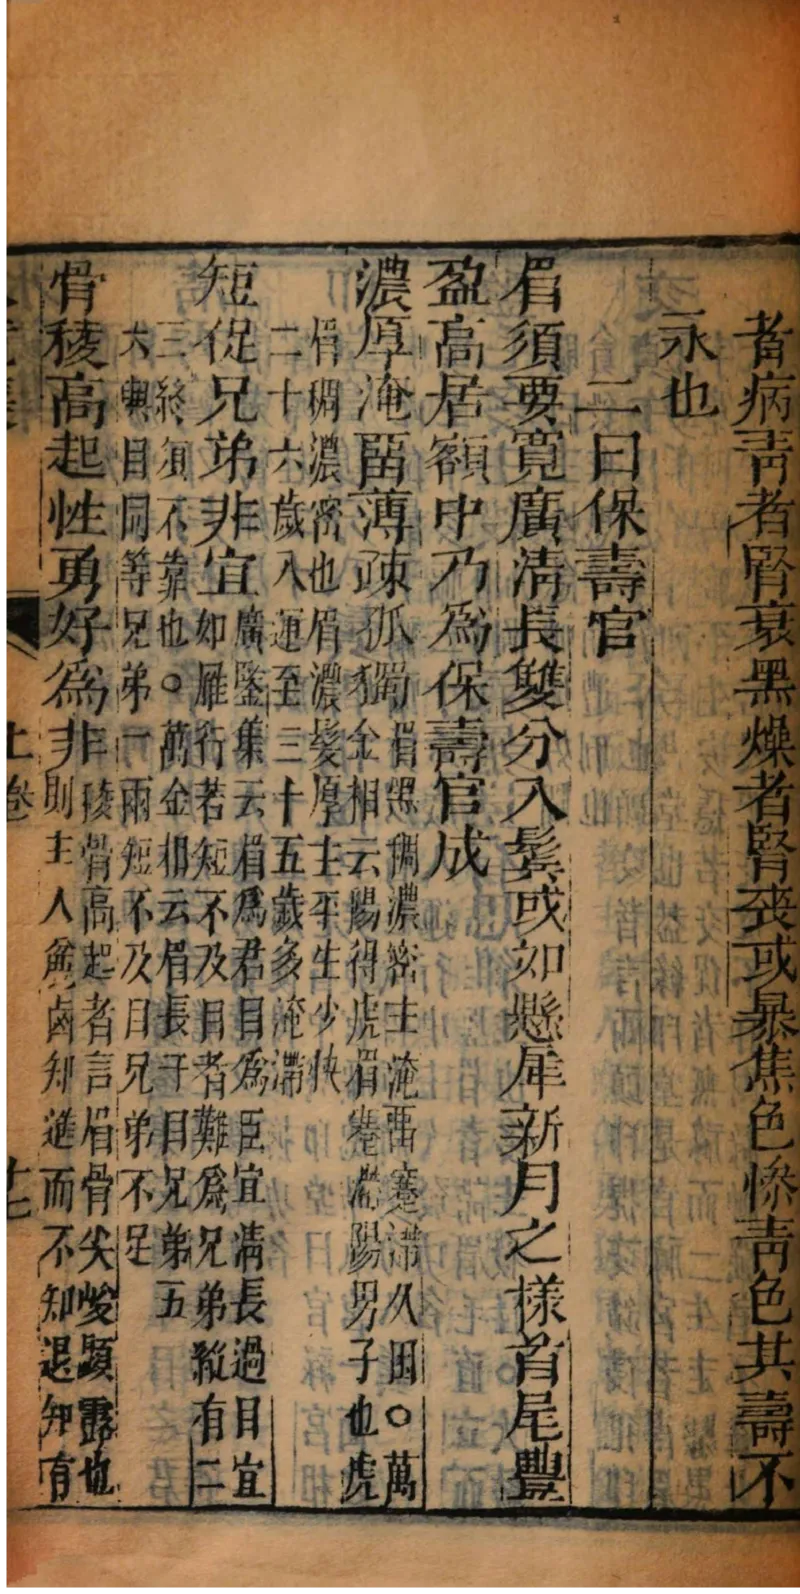 者病青者腎衰黑燥者腎喪或暴焦色慘青色其壽不
永也
二曰保壽官
眉須要寬廣清長雙分入鬢或如懸犀新月之樣首尾豐
盈高居額中乃爲保壽官成
濃厚淹留薄疎孤獨
眉濕稠濃密主淹留蹇滯久困○萬
金相云陽得虎眉蹇滯陽男子也虎
眉稠濃密也眉濃髮厚主平生少快
二十六歲入運至三十五歲多淹滯
短促兄弟非宜
廣鑒集云眉爲君目爲臣宜清長過目宜
如雁行若短不及目者難爲兄弟縱有二
三終須不靠也○萬金相云眉長于目兄弟五
六與目同等兄弟一兩短不及目兄弟不足
骨稜高起性勇好爲非
稜骨高起者言眉骨尖峻顯露也
則主人麄鹵知進而不知退知有
上卷
十七